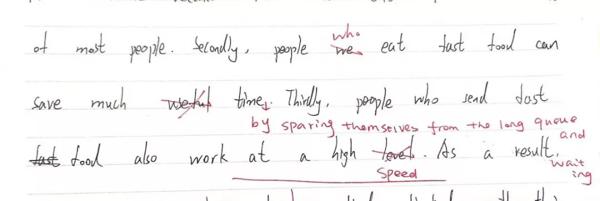 of most people. Secondly, people who me eat fast food can
save much useful time. Thirdly, people who send fast
by sparing themselves from the long queue and waiting
fast food also work at a high level. As a result,
speed